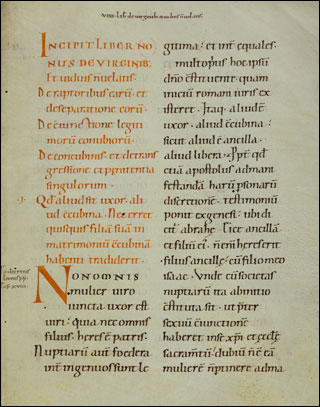 INCIPIT LIBER NO
NUS DE VIRGINIB;
Et uiduis n̄ uelatis
De raptoribus earū · et
de separatione eorū ·
De c̄iunctione legiti
morū conubiorū ·
De concubinis · et de trans
gressione et penitentia
singulorum ·
·I·
Qd̄ aliud sit uxor · aliud
c̄cubina · Nec erret
quisquis filiā suā in
matrimoniū c̄cubinā
habenti tradiderit ·
NON OMNIS
mulier uiro
iuncta uxor est
uiri · quia nec omnis
filius · heres ē patris ·
Nuptiarū aut̄ foedera
int̄ ingenuos sunt le
gitima · et int̄ equales ·
multo p̄us hoc ipsū
dn̄o c̄stituente · quam
inicium romani iuris ex
isteret · Itaq; aliud ē
uxor · aliud c̄cubina ·
sicut aliud ē ancilla ·
aliud libera · Ppt̄ qd̄
etiā apostolus ad mani
festandā harū psonarū
discretionē · testimoniū
ponit ex genesi · ubi dicit̄
abrahę · Eice ancillā
et filiū ei · n̄ enī heres erit
filius ancillę · cū filio meo
isaac · Unde cū societas
nuptiarū ita ab initio
c̄stituta sit · ut pt̄er
sexuū c̄iunctionē
haberet in se xp̄i et ęcclę
sacram̄tū · dubiū n̄ ē eā
mulierē n̄ ptinere ad ma